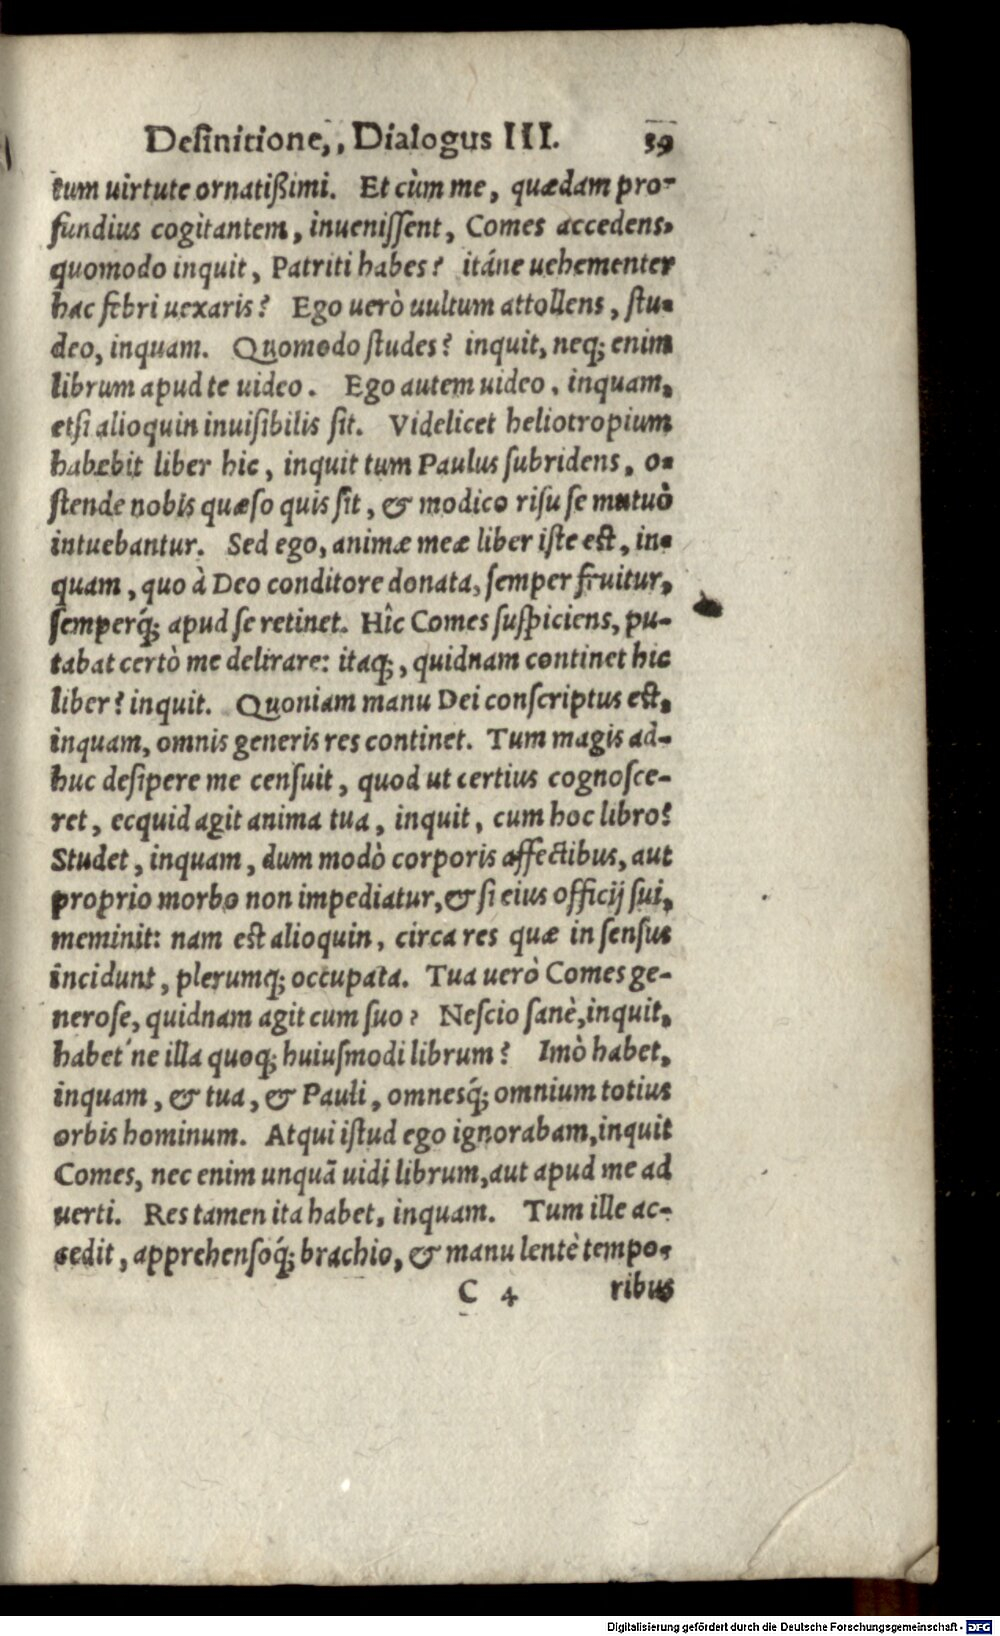 Definitione,, Dialogus III. 39
tum uirtute ornatißimi. Et cùm me, quædam pro-
fundius cogitantem, inueniſſent, Comes accedens,
quomodo inquit, Patriti habes? itáne uehementer
hac febri uexaris? Ego uerò uultum attollens, ſtu-
deo, inquam. Quomodo ſtudes? inquit, neq; enim
librum apud te uideo. Ego autem uideo, inquam,
etſi alioquin inuiſibilis ſit. Videlicet heliotropium
habebit liber hic, inquit tum Paulus ſubridens, o-
ſtende nobis quæſo quis ſit, & modico riſu ſe mutuò
intuebantur. Sed ego, animæ meæ liber iſte eſt, in-
quam, quo à Deo conditore donata, ſemper fruitur,
ſemperq́; apud ſe retinet. Hîc Comes ſuſpiciens, pu-
tabat certò me delirare: itaq;, quidnam continet hic
liber? inquit. Quoniam manu Dei conſcriptus eſt,
inquam, omnis generis res continet. Tum magis ad-
huc deſipere me cenſuit, quod ut certius cognoſce-
ret, ecquid agit anima tua, inquit, cum hoc libro?
Studet, inquam, dum modò corporis affectibus, aut
proprio morbo non impediatur, & ſi eius officij ſui,
meminit: nam eſt alioquin, circa res quæ in ſenſus
incidunt, plerumq; occupata. Tua uerò Comes ge-
neroſe, quidnam agit cum ſuo? Neſcio ſanè, inquit,
habet'ne illa quoq; huiuſmodi librum? Imò habet,
inquam, & tua, & Pauli, omnesq́; omnium totius
orbis hominum. Atqui iſtud ego ignorabam, inquit
Comes, nec enim unquã uidi librum, aut apud me ad
uerti. Res tamen ita habet, inquam. Tum ille ac-
cedit, apprehenſoq́; brachio, & manu lentè tempo-
C 4 ribus
Digitalisierung gefördert durch die Deutsche Forschungsgemeinschaft - DFG